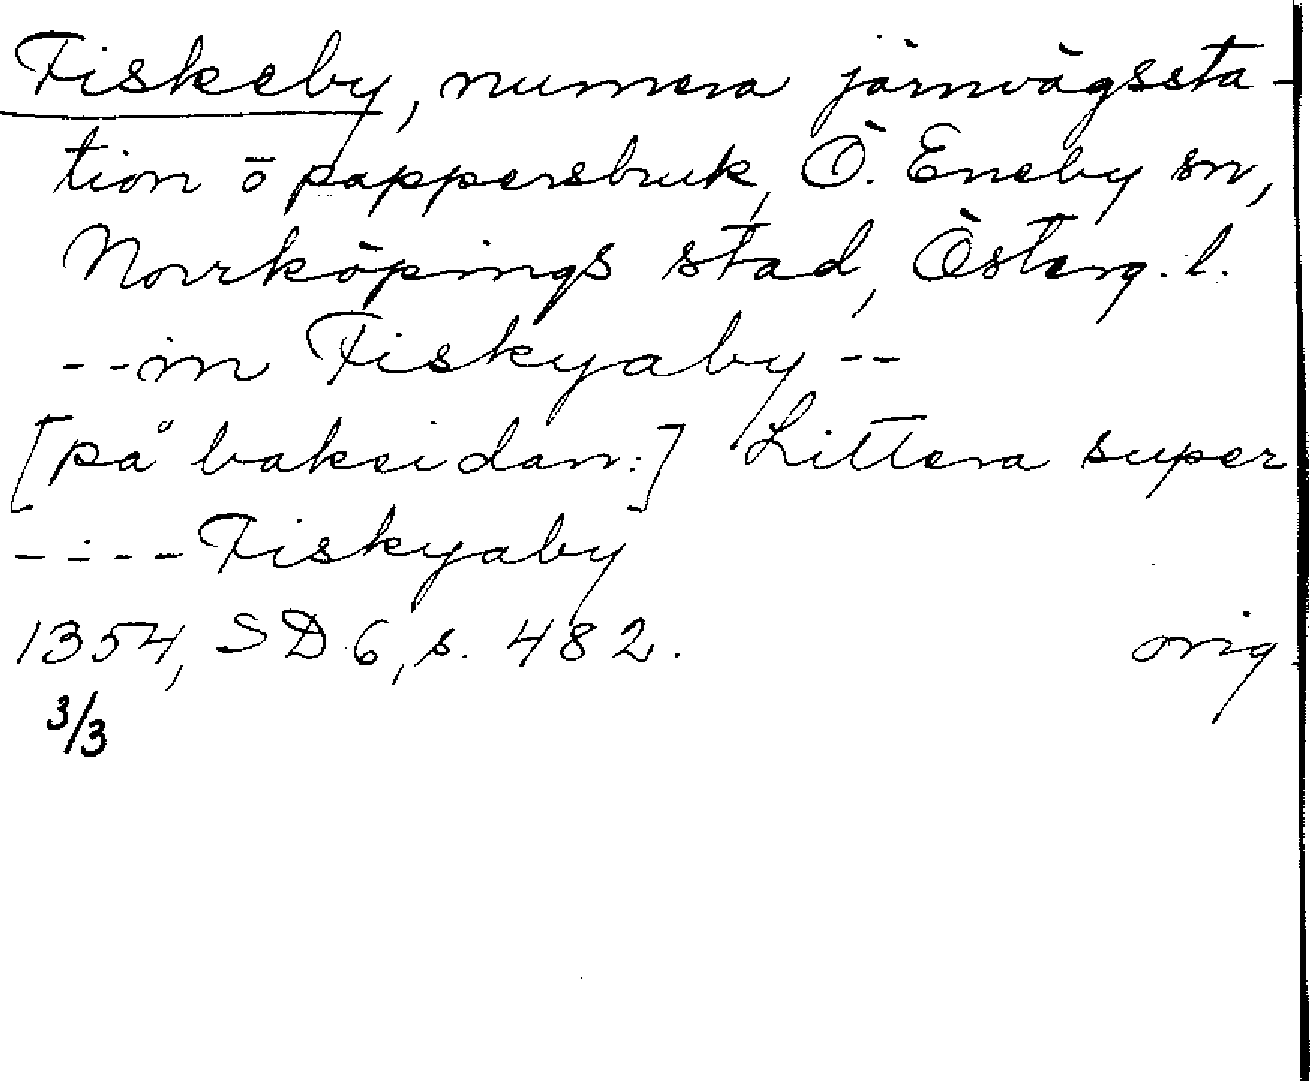 Fiskeby, numera järnvägssta-
tion o pappersbruk, Ö. Eneby sn,
Norrköpings stad, Österg. l.
--in Fiskyaby--
[på baksidan:] Littera super
---- Fiskyaby
1354, SD 6, s. 482. orig.
3/3